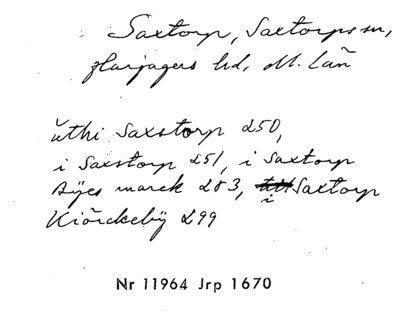 Saxtorp, Saxtorps sn,
Harjagers hd, M. län
ŭthi Saxstorp 250,
i Saxstorp 251, i Saxtorp
Bÿes marck 283, i Saxtorp
Kiörckebÿ 299
Nr 11964 Jrp 1670